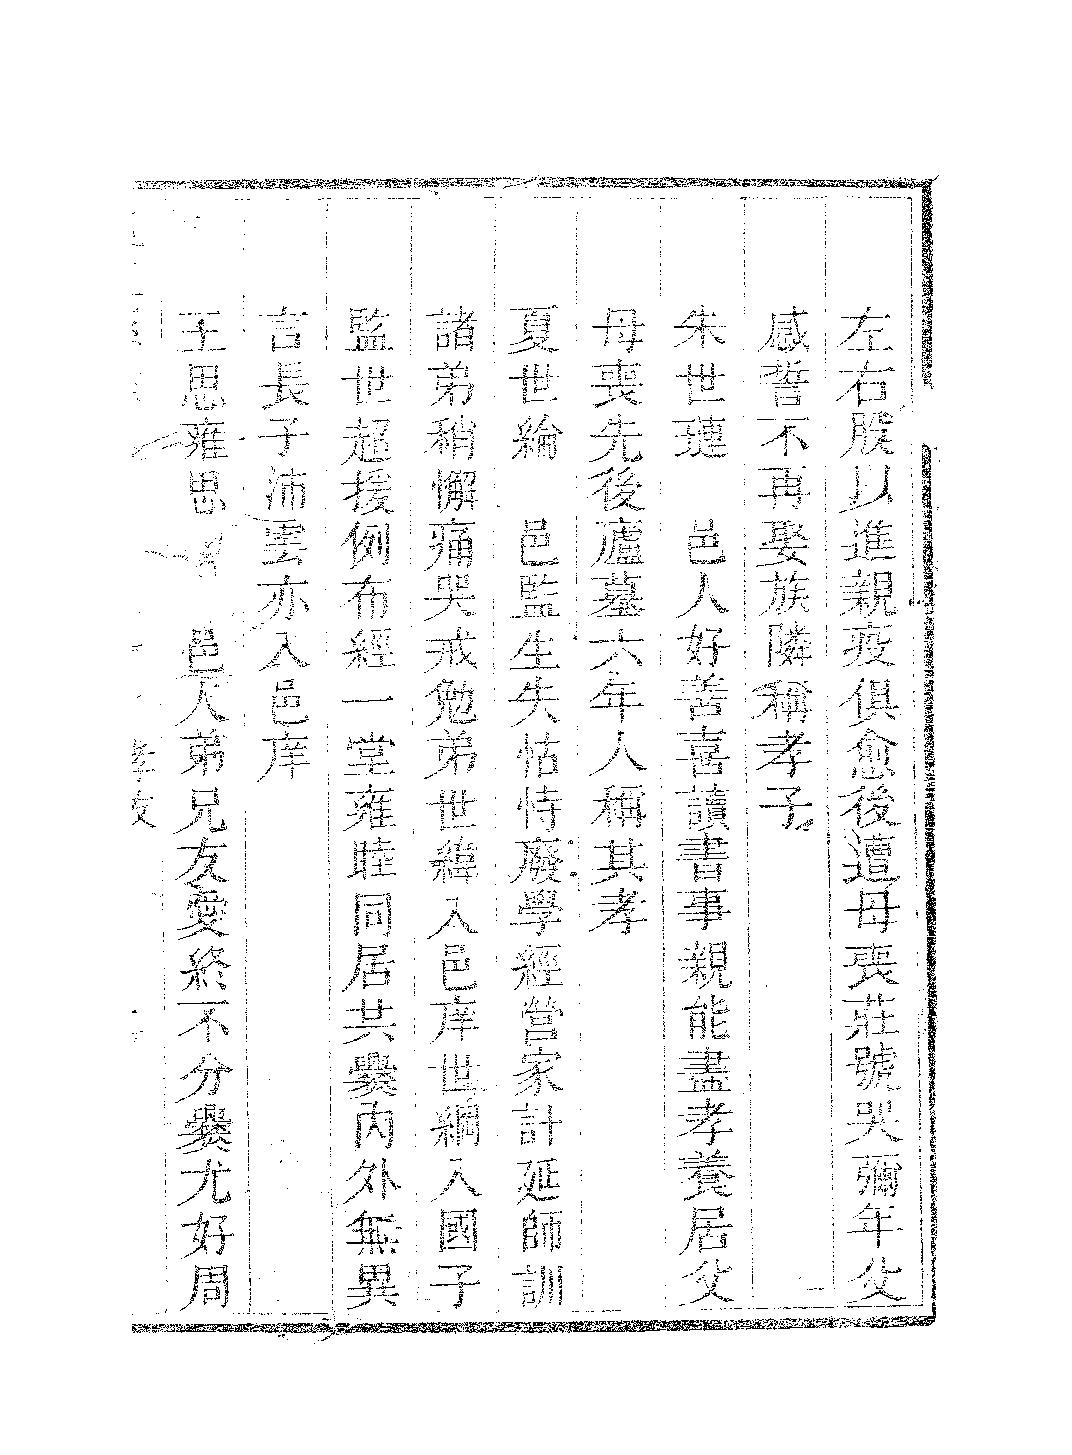 左右股以進親疫俱愈後遭母喪莊號哭彌年父
感誓不再娶族隣稱孝子
朱世璉　邑人好善喜讀書事親能盡孝養居父
母喪先後廬墓六年人稱其孝
夏世綸　邑監生失怙恃廢學經營家計延師訓
諸弟稍懈痛哭戒勉弟世緯入邑庠世綱入國子
監世超援例布經一堂雍睦同居共爨内外無異
言長子沛雲亦入邑庠
王思雍思　邑人弟兄友愛終不分爨尤好周
孝友